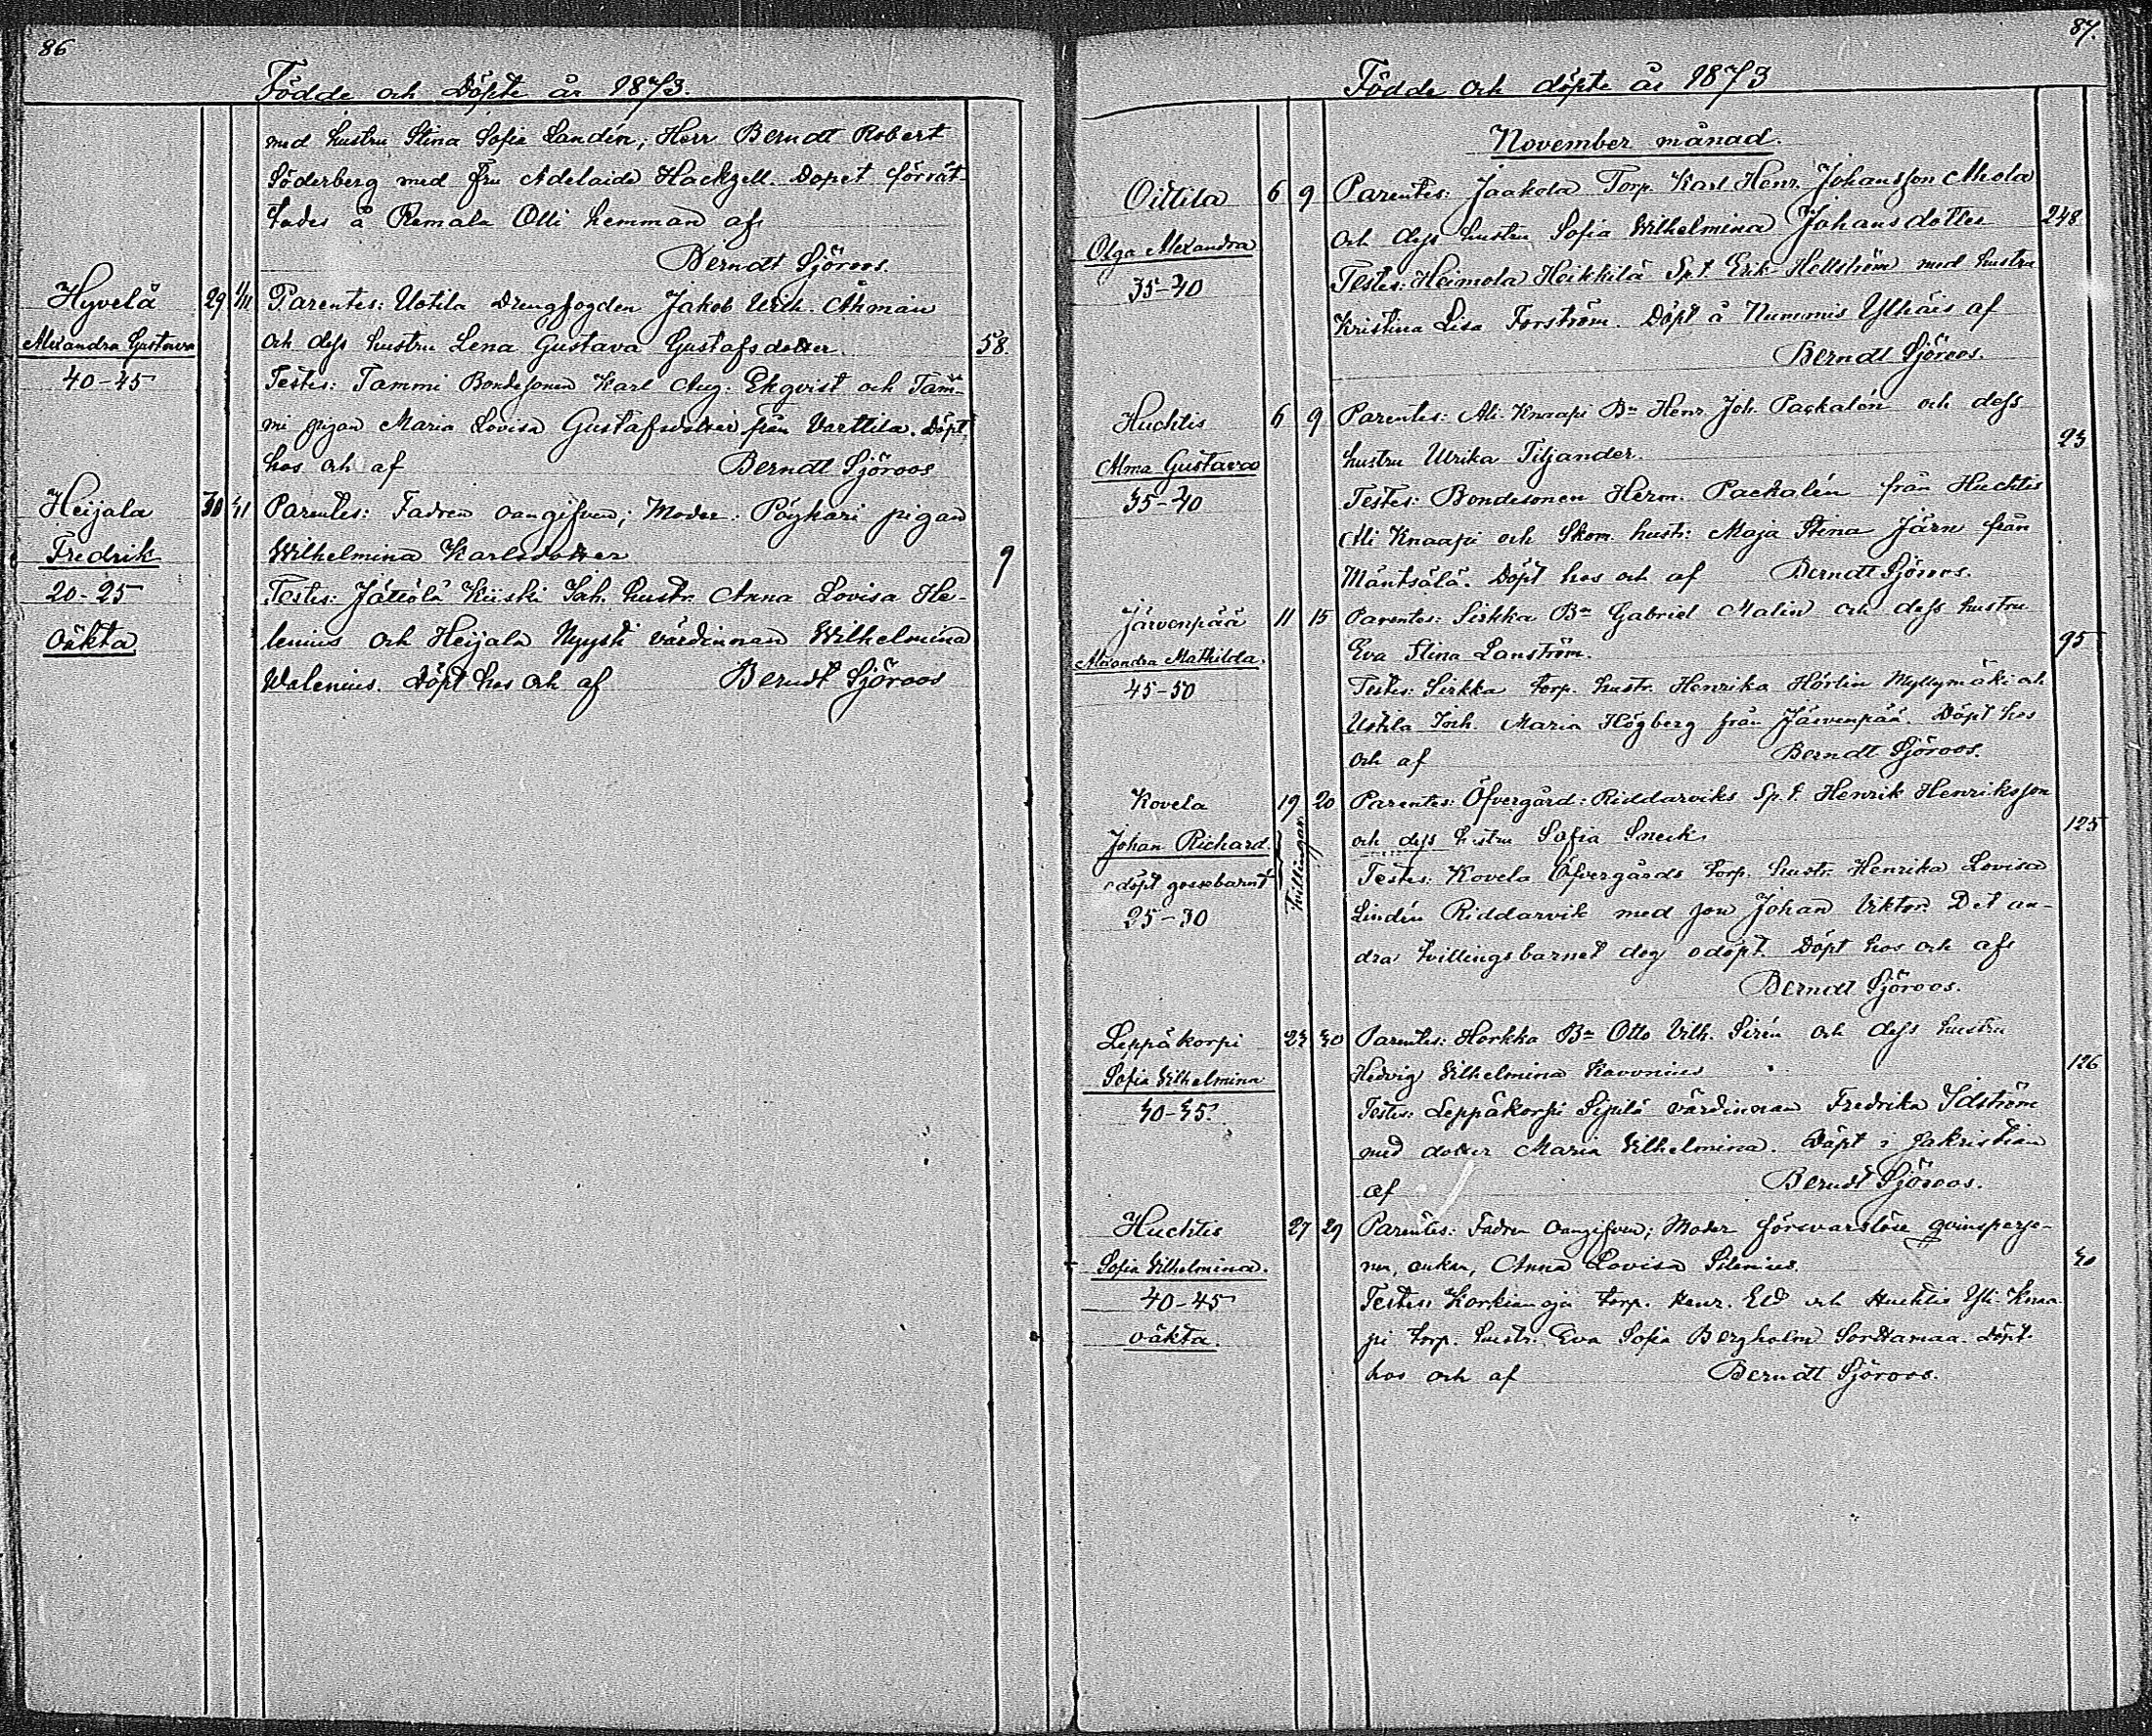 86
Födde och Döpte år 1873.
med hustru Stina Sofia Landén; Herr Berndt Robert
Söderberg med Fru Adelaide Hackzell. Dopet förrät-
tades å Remala Olli hemman af
Berndt Sjöroos.
Hyvelä 29 1/11 Parentes: Uotila Drengfogden Jakob Wilh. Åhman
Alexandra Gustava och dess hustru Lena Gustava Gustafsdotter 58.
40-45 Testes: Tammi Bondesonen Karl Aug. Ekqvist och Tam-
mi pigan Maria Lovisa Gustafsdotter från Varttila. Döpt
hos och af Berndt Sjöroos
Heijala 30 31 Parentes: Fadren oangifven; Moder: Pöyhäri pigan
Fredrik Wilhelmina Karlsdotter 9
20-25 Testes: Jätiölä Kiiski Inh. hustr. Anna Lovisa He-
oäkta lenius och Heijala Nyysti värdinnan Wilhelmina
Walenius. Döpt hos och af Berndt Sjöroos
87.
Födde och döpte år 1873
November månad.
Oittila 6 9 Parentes: Jaakola Torp. Karl Henr. Johansson Ahola
och dess hustru Sofia Wilhelmina Johansdotter 248
Olga Alexandra
Testes: Heimola Heikkilä Sp.t. Erik Hellström med hustru
35-40
Kristina Lisa Forström. Döpt å Nummis Ylhäis af
Berndt Sjöroos.
Huchtis 6 9 Parentes: Ali Knaapi Bn Henr. Joh. Packalén och dess
hustru Ulrika Tiljander. 23
Alma Gustava
35-40 Testes: Bondesonen Herm. Packalén från Huchtis
Ali Knaapi och Skom. hustr: Maja Stina Järn från
Mäntsälä. Döpt hos och af Berndt Sjöroos.
Järvenpää 11 15 Parentes: Sirkka Bn Gabriel Malin och dess hustru
Eva Stina Lanström. 95
Alexandra Mathilda.
45-50 Testes: Sirkka torp. hustr. Henrika Hörlin Myllymäki och
Uotila Inh. Maria Högberg från Järvenpää. Döpt hos
och af Berndt Sjöroos.
Kovela 19 20 Parentes: Öfvergård: Riddarviks Sp.t. Henrik Henriksson
Johan Richard. Tvillingar. och dess hustru Sofia Sneck. 125
odöpt gossebarnt Testes: Kovela Öfvergårds torp. hustr. Henrika Lovisa
25-30 Lindén Riddarvik med son Johan Viktor. Det an-
dra tvillingsbarnet dog odöpt. Döpt hos och af
Berndt Sjöroos.
Leppäkorpi 23 30 Parentes: Horkka Bn Otto Vilh. Sirén och dess hustru
Sofia Vilhelmina Hedvig Vilhelmina 126
30-35. Testes: Leppäkorpi Sipilä värdinnan Fredrika Idström
med dotter Maria Vilhelmina. Döpt i sakristian
af Berndt Sjöroos.
Huchtis 27 29 Parentes: Fadren oangifven; Moder försvarslöse qvinsperso-
Sofia Vilhelmina. nen, enkan, Anna Lovisa Silenius. 30
40-45 Testes: Korkianoja torp. Henr. Eld och Huchtis Yli-Knaa-
oäkta. pi torp. hustr. Eva Sofia Bergholm Sordamaa. Döpt
hos och af Berndt Sjöroos.